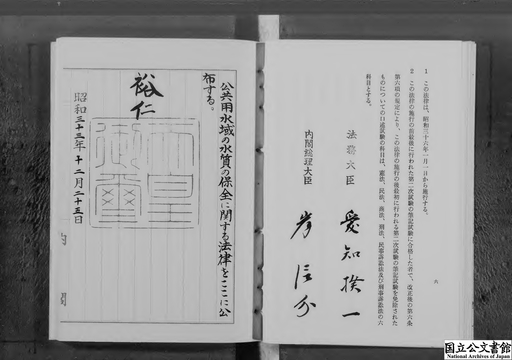 1 この法律は、昭和三十六年一月一日から施行する。
2 この法律の施行の前最後に行われた第二次試験の筆記試験に合格した者で、改正後の第六条
第六項の規定により、この法律の施行の後最初に行われる第二次試験の筆記試験を免除された
ものについての口述試験の科目は、憲法、民法、商法、刑法、民事訴訟法及び刑事訴訟法の六
科目とする。
六
法務大臣 愛知揆一
内閣総理大臣 岸信介
公共用水域の水質の保全に関する法律をここに公
布する。
裕仁
天皇
御璽
昭和三十三年十二月二十五日
国立公文書館
National Archives of Japan